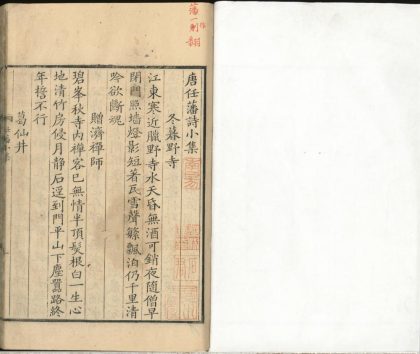 唐任藩詩小集
冬暮野寺
江東寒近臘野寺水天昏無酒可銷夜隨僧早
閉門照墻燈影短著瓦雪聲繁飄泊仍千里清
吟欲斷魂
贈濟禪師
碧峯秋寺內禪客已無情半頂髮根白一生心
地清竹房侵月靜石逕到門平山下塵囂路終
年誓不行
葛仙井